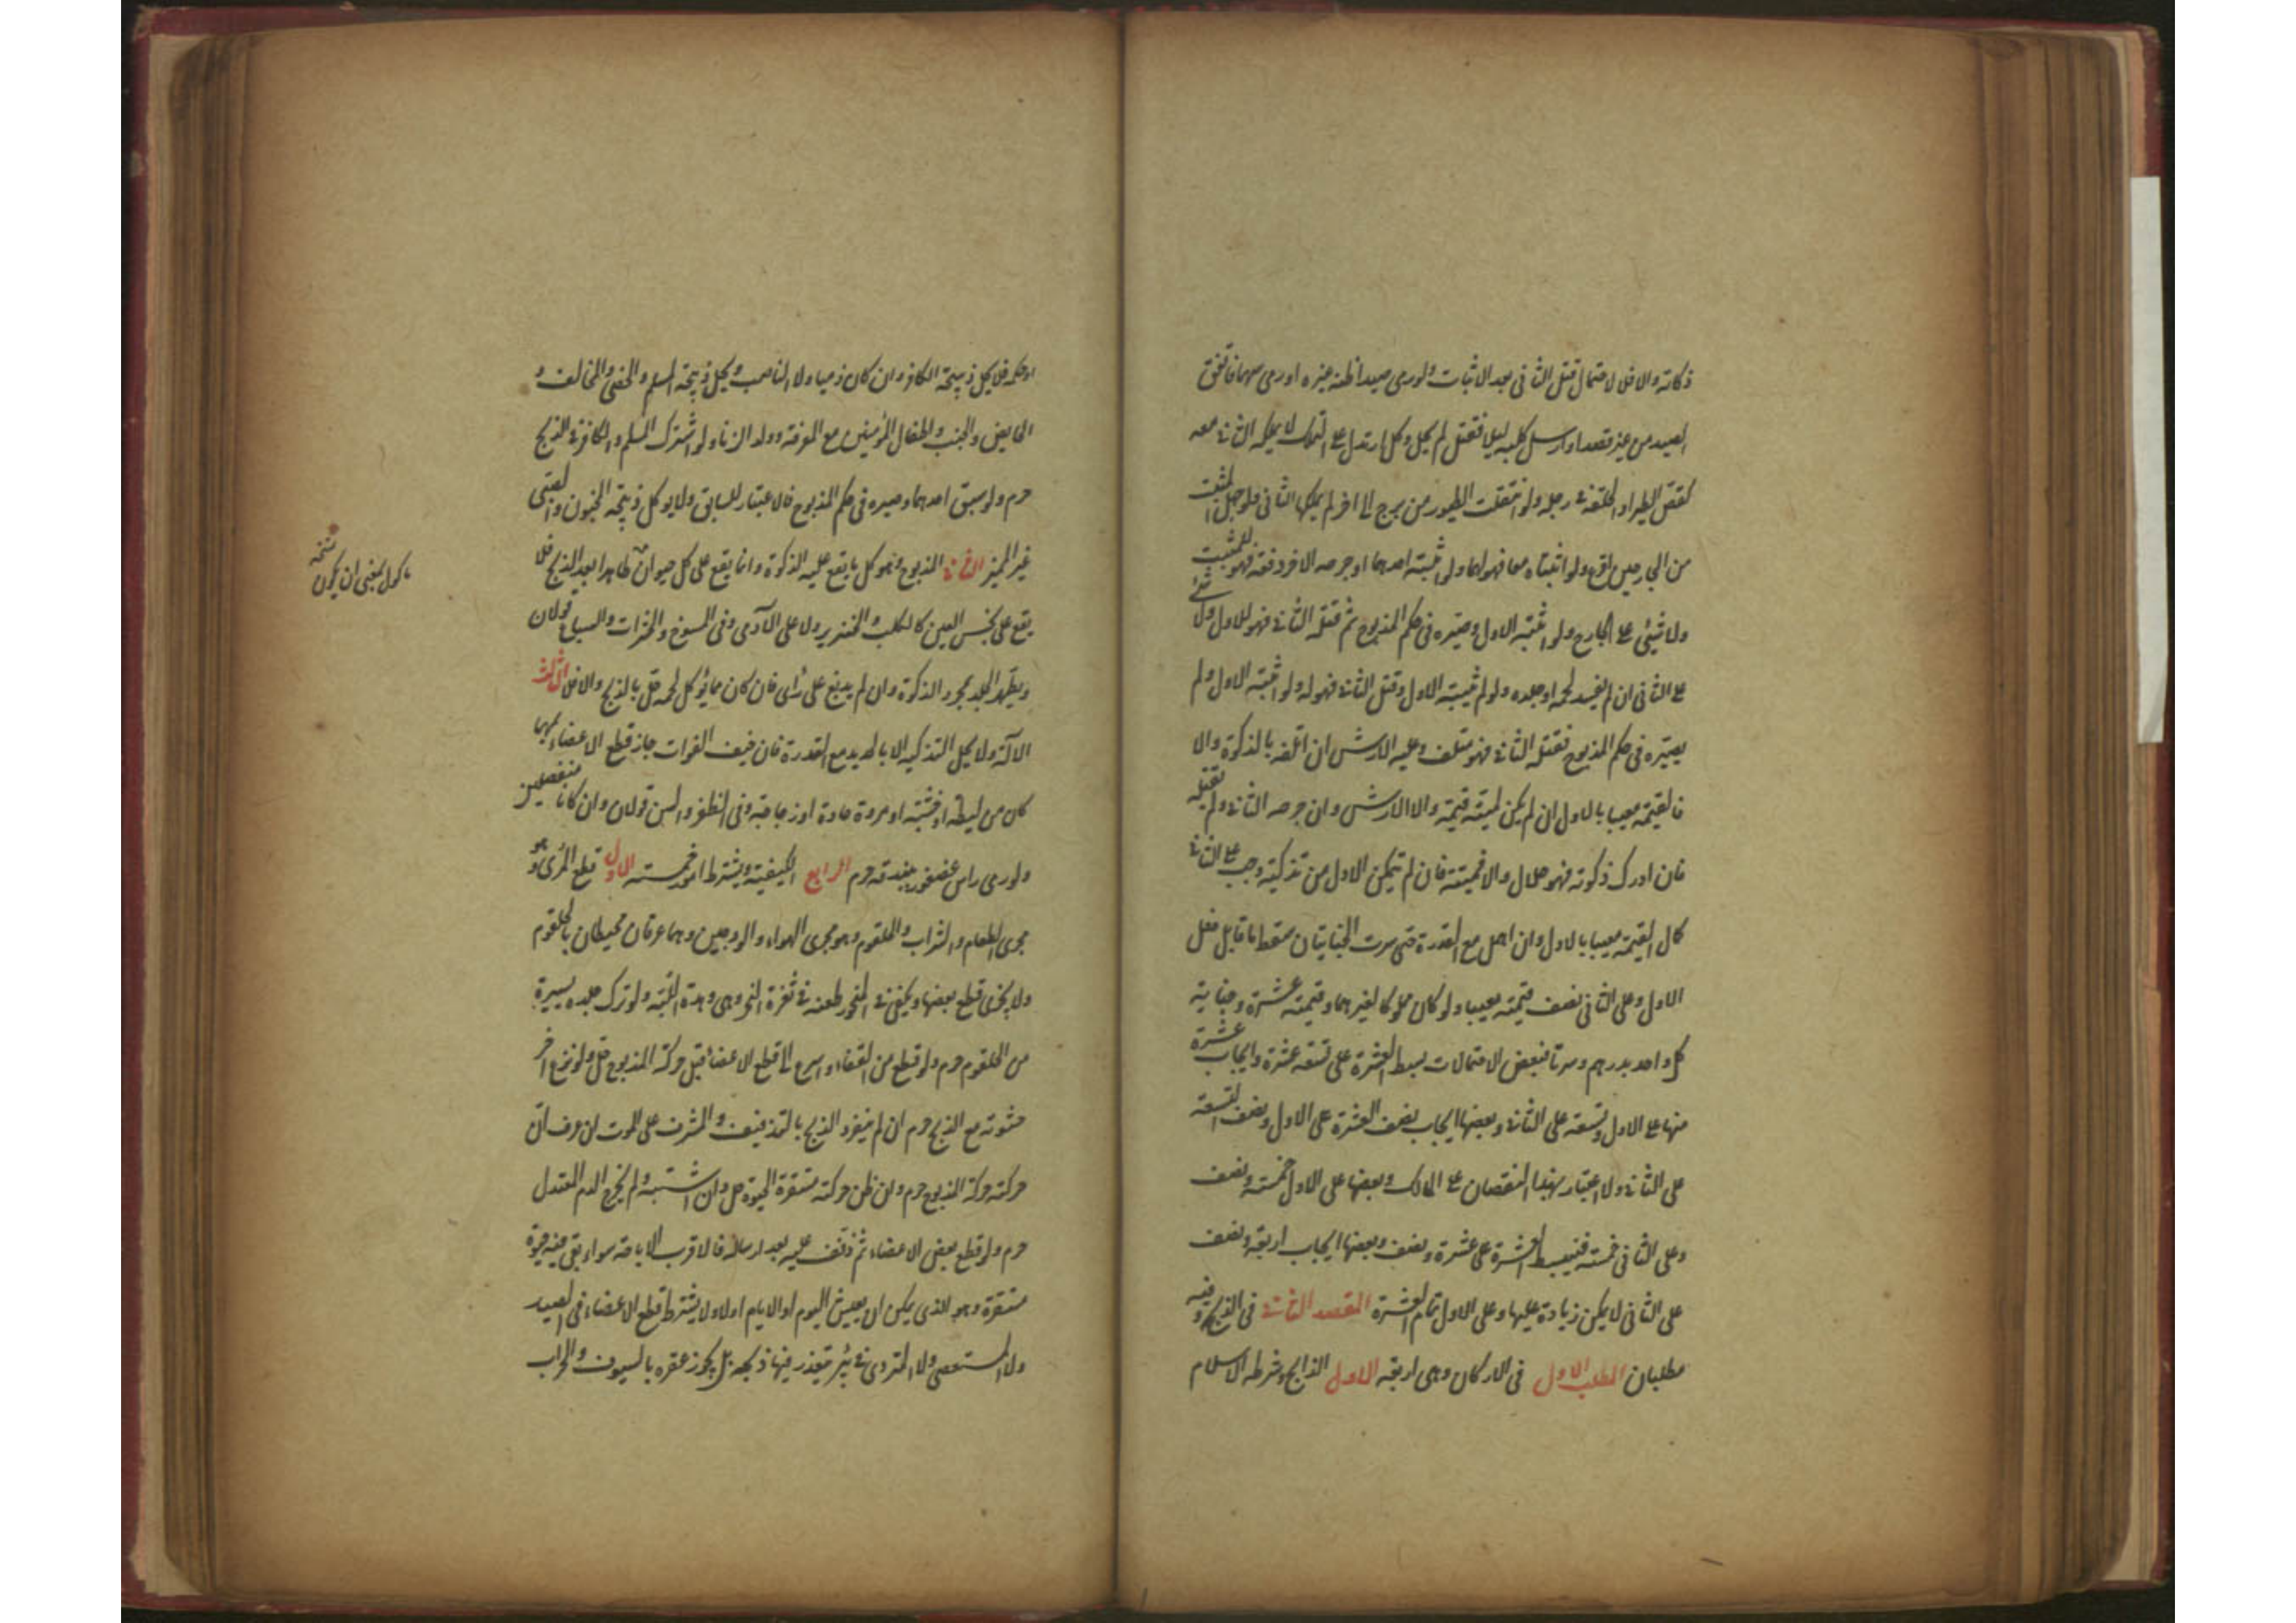 ذكاته والا فلا لاحتمال قتل الثانى بعد الاثبات ولو رمى صيدا ظنه غيره او رمى سهما فاتفق
الصيد من غير قصد او ارسل كلبه ليلا فقتل لم يحل وكل ما يدل على التملك لا يملكه الثانى معه
كقص الطير او الحلقة فى رجله ولو انتقلت الطيور من برج الى اخر لم يملكها الثانى ولو جهل المثبت
من الجارحين اقرع ولو اثبتاه معا فهو لهما ولو اثبته احدهما او جرحه الاخر دفعة فهو للمثبت
ولا شيئ على الجارح ولو اثبته الاول وصيره فى حكم المذبوح ثم قتله الثانى فهو للاول ولا شئ
على الثانى ان لم يفسد لحمه او جلده ولو لم يثبته الاول وقتل الثانى فهو له ولو اثبته الاول ولم
يصيره فى حكم المذبوح فقتله الثانى فهو متلف وعليه الارش ان اتلفه بالذكوة والا
فالقيمة معيبا بالاول ان لم يكن لميتته قيمة والا الارش وان جرحه الثانى ولم يقتله
فان ادرك ذكوته فهو حلال والا فميتة فان لم يتمكن الاول من تذكيته وجب على الثانى
كمال القيمة معيبا بالاول وان اهمل مع القدرة حتى سرت الجنايتان سقط ما قابل فعل
الاول وعلى الثانى نصف قيمته معيبا ولو كان مملوكا لغيرهما وقيمته عشرة وجناية
كل واحد بدرهم وسرتا فبعض الاحتمالات بسط العشرة على تسعة عشرة وايجاب عشرة
منها على الاول وتسعة على الثانى وبعضها ايجاب نصف العشرة على الاول ونصف التسعة
على الثانى ولا اعتبار بهذا النقصان على المالك وبعضها على الاول خمسة ونصف
وعلى الثانى خمسة فيبسط العشرة على عشرة ونصف وبعضها ايجاب اربعة ونصف
على الثانى لا يمكن زيادة عليها وعلى الاول تمام العشرة المقصد الثانى فى الذبح وفيه
مطلبان المطلب الاول فى الاركان وهى اربعة الاول الذابح وشرطه الاسلام
او حكمه فلا يحل ذبيحة الكافر وان كان ذميا ولا الناصب ويحل ذبيحة المسلم والخصى والمخالف و
الحايض والجنب والطفال المؤمنين مع المعرفة وولد الزنا ولو اشترك المسلم والكافر فى الذبح
حرم ولو سبق احدهما وصيره فى حكم المذبوح فالاعتبار للسابق ولا يوكل ذبيحة المجنون والصبى
غير المميز الثانى المذبوح وهو كل ما يقع عليه الذكوة وانما يقع على كل حيوان طاهرا بعد الذبح فلا
يقع على نجس العين كالكلب والخنزير ولا على الآدمى وفى المسوخ والحشرات والسباع قولان
ويطهر الجلد بمجرد الذكوة وان لم يدبغ على رأى فان كان مما يؤكل لحمه حل بالذبح والا فلا الثالث
الآلة ولا يحل التذكية الا بالحديد مع القدرة فان خيف الفوات جاز قطع الاعضاء بمها
كان من ليطة او خشبة او مروة حادة او زجاجة وفى الظفر والسن قولان وان كانا منفصلين
ولو رمى راس عصفور ببندقة حرم الرابع الكيفية ويشترط امور خمسة الاول قطع المرى وهو
مجرى الطعام والشراب والحلقوم وهو مجرى الهواء والودجين وهما عرقان محيطان بالحلقوم
ولا يجزى قطع بعضها ويكفى فى المنحور طعنه فى ثغرة النحر وهى وهدة اللبة ولو ترك جلده يسيرة
من الحلقوم حرم ولو قطع من القفاء واسرع الى قطع الاعضاء قبل حركة المذبوح حل ولو نزع اخر
حشوته مع الذبح حرم ان لم ينفرد الذبح بالتذفيف والمشرف على الموت ان عرف ان
حركته حركة المذبوح حرم وان ظن حركته مستقرة الحيوة حل وان اشتبه ولم يخرج الدم المعتدل
حرم ولو قطع بعض الاعضاء ثم ذفف عليه بعد ارساله فالاقرب الاباحة سواء بقى فيه حيوة
مستقرة وهو الذى يمكن ان يعيش اليوم او الايام اولا ولا يشترط قطع الاعضاء فى الصيد
ولا المستعصى ولا المتردى فى بئر يتعذر فيها ذبحه بل يجوز عقره بالسيوف والحراب
نسخه
ماكول بمعنى ان يكون